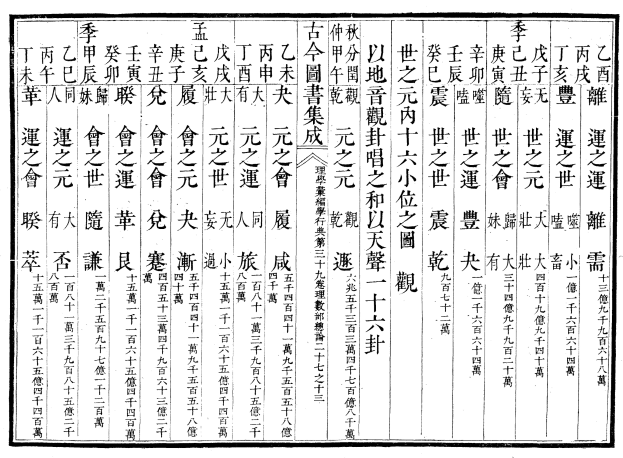 乙酉丙戌 離 運之運 離 需 十三億九千九百六十八萬
丁亥 豐 運之世 噬嗑 小畜 一億一千六百六十四萬
季 戊子己丑 无妄 世之元 大壯 大壯 四百十九億九千四十萬
庚寅辛卯 隨 世之會 歸妹 大有 三十四億九千九百二十萬
壬辰 噬嗑 世之運 豐 夬 一億一千六百六十四萬
癸巳 震 世之世 震 乾 九百七十二萬
世之元內十六小位之圖 觀
以地音觀卦唱之和以天聲一十六卦
秋分閏仲甲午 觀乾 元之元 觀乾 遯 六兆五千三百三萬四千七百億八千萬
古今圖書集成
理學彙編學行典第三十九卷理數部總論二十七之十三
乙未丙申 夬 元之會 履 咸 五千四百四十一萬九千五百五十八億四千萬
丁酉 大有 元之運 同人 旅 一百八十一萬三千九百八十五億二千八百萬
孟 戊戌己亥 大壯 元之世 无妄 小過 十五萬一千一百六十五億四千四百萬
庚子 履 會之元 夬 漸 五千四百四十一萬九千五百五十八億四千萬
辛丑 兌 會之會 兌 蹇 四百五十三萬四千九百六十三億二千萬
壬寅癸卯 睽 會之運 革 艮 十五萬一千一百六十五億四千四百萬
季 甲辰 歸妹 會之世 隨 謙 一萬二千五百九十七億一千二百萬
乙巳丙午 同人 運之元 大有 否 一百八十一萬三千九百八十五億二千八百萬
丁未 革 運之會 睽 萃 十五萬一千一百六十五億四千四百萬